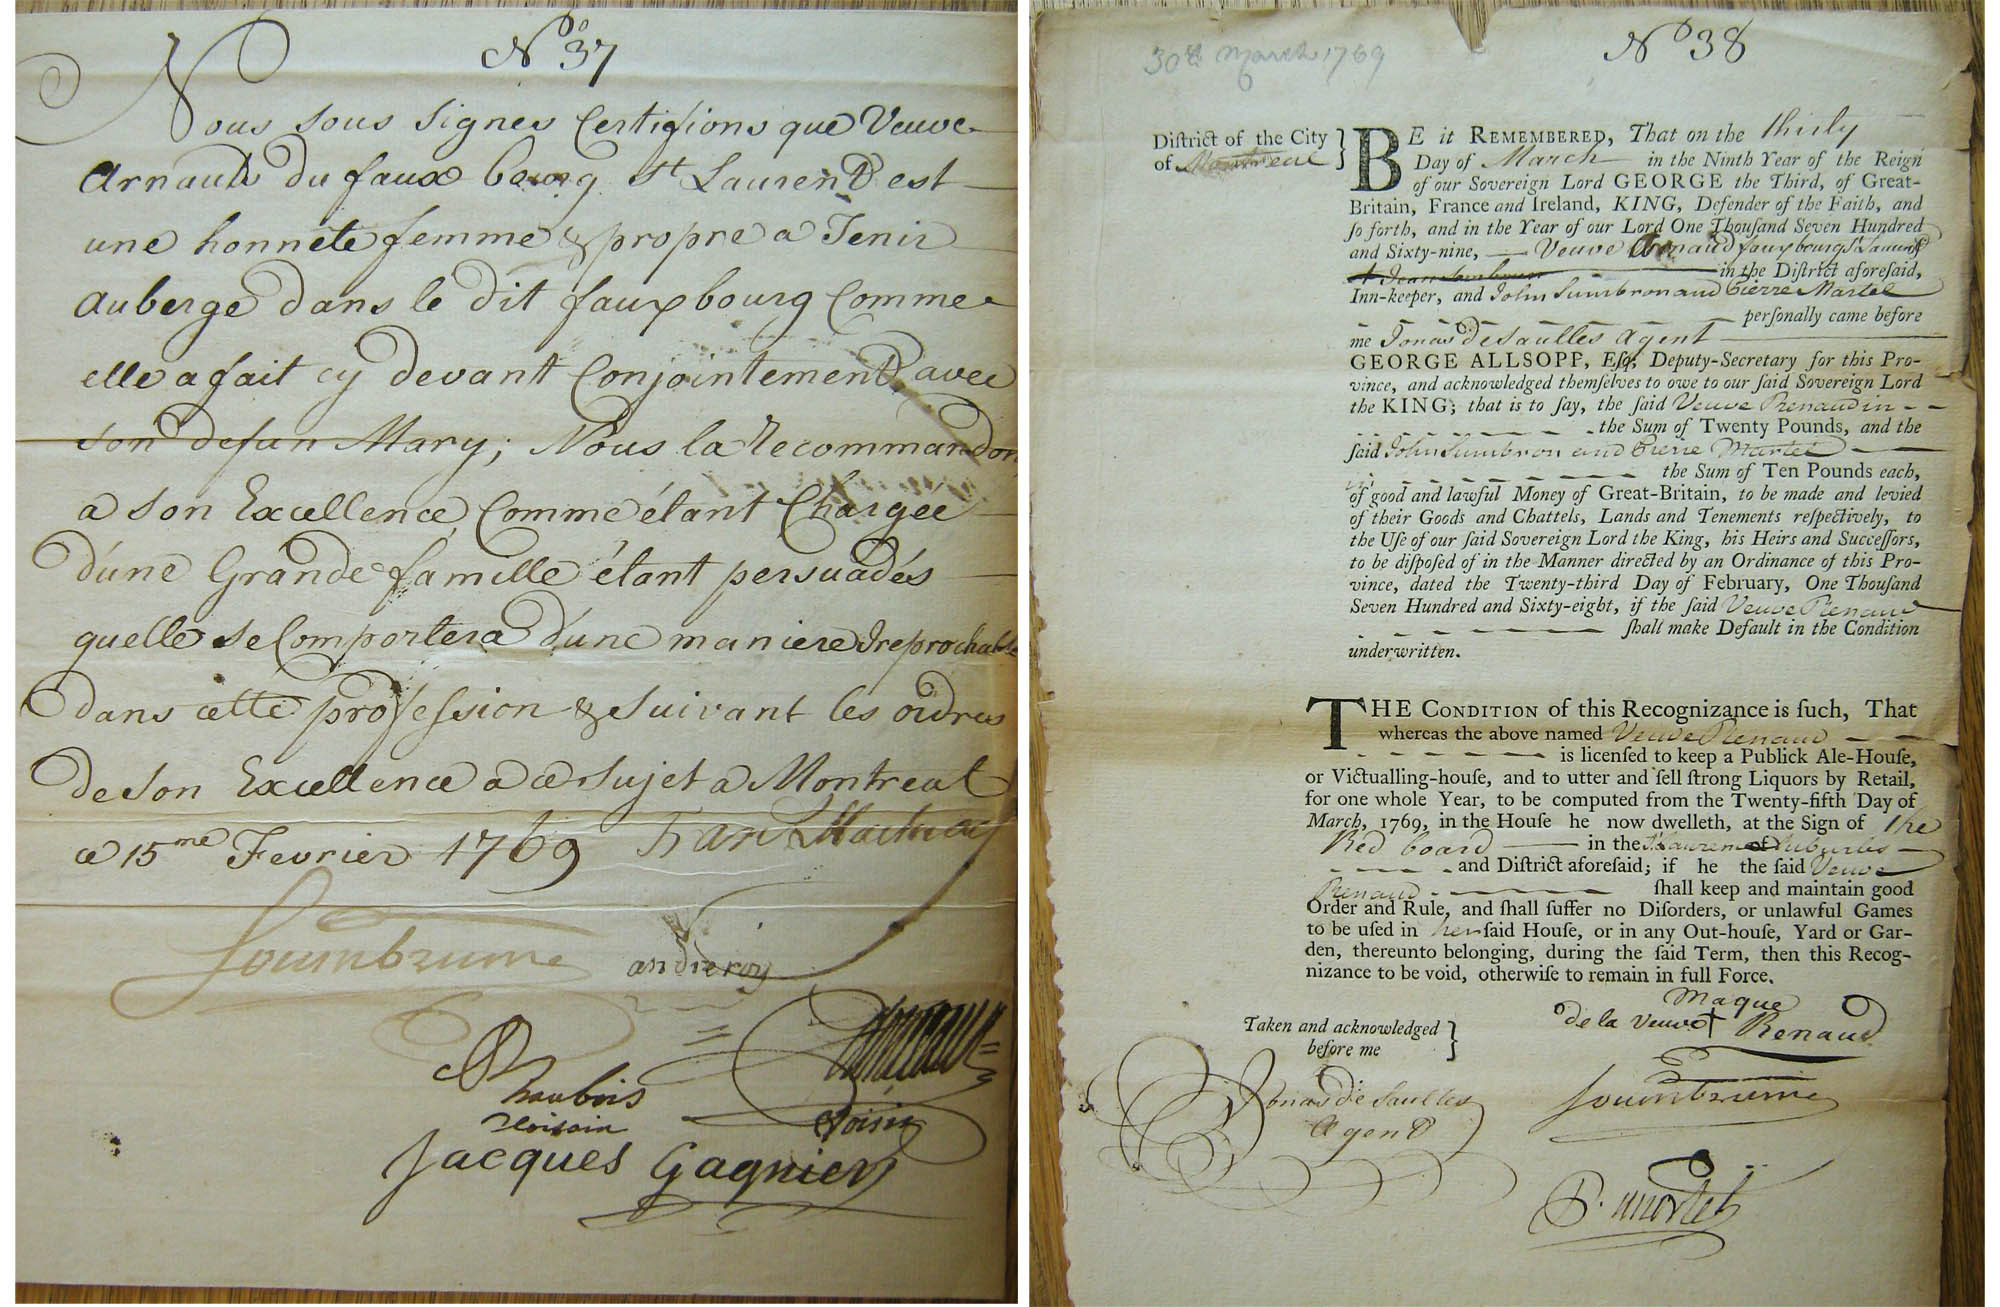 No 37
Nous sous signes Certifions que Veuve
Arnauts du faux bourg St Laurent est
une honnéte femme & propre a Tenir
auberge dans le dit fauxbourg Comme
elle a fait cy devant Conjointement avec
son defun Mary; Nous la Recommandon
a son Excellence Comme étant Chargée
d'une Grande famille étant persuadés
quelle se Comportera d'une maniere Ireprochable
dans cette profession & suivant les ordres
de son Excellence a ce sujet a Montreal
ce 15me Fevrier 1769
Soumbrunn
andre roy
voisin
Jacques Gagnier
30th March 1769
No 38
District of the City
of Montreal
BE it REMEMBERED, That on the thirty
Day of March in the Ninth Year of the Reign
of our Sovereign Lord GEORGE the Third, of Great-
Britain, France and Ireland, KING, Defender of the Faith, and
so forth, and in the Year of our Lord One Thousand Seven Hundred
and Sixty-nine, Veuve Renaud fauxbourg St Laurent
in the District aforesaid,
Inn-keeper, and John Sumbron and Pierre Martel
personally came before
me Jonas Desaulles Agent
GEORGE ALLSOPP, Esq; Deputy-Secretary for this Pro-
vince, and acknowledged themselves to owe to our said Sovereign Lord
the KING; that is to say, the said Veuve Renaud in
the Sum of Twenty Pounds, and the
said John Sumbron and Pierre Martel
the Sum of Ten Pounds each,
of good and lawful Money of Great-Britain, to be made and levied
of their Goods and Chattels, Lands and Tenements respectively, to
the Use of our said Sovereign Lord the King, his Heirs and Successors,
to be disposed of in the Manner directed by an Ordinance of this Pro-
vince, dated the Twenty-third Day of February, One Thousand
Seven Hundred and Sixty-eight, if the said Veuve Renaud
shall make Default in the Condition
underwritten.
THE CONDITION of this Recognizance is such, That
whereas the above named Veuve Renaud
is licensed to keep a Publick Ale-House,
or Victualling-house, and to utter and sell strong Liquors by Retail,
for one whole Year, to be computed from the Twenty-fifth Day of
March, 1769, in the House he now dwelleth, at the Sign of the
Red board in the St Laurent Suburbs
and District aforesaid; if he the said Veuve
Renaud shall keep and maintain good
Order and Rule, and shall suffer no Disorders, or unlawful Games
to be used in her said House, or in any Out-house, Yard or Gar-
den, thereunto belonging, during the said Term, then this Recog-
nizance to be void, otherwise to remain in full Force.
Maque
de la veuve + Renaud
Taken and acknowledged
before me
Jonas de Saulles
Agent
Soumbrunn
P. martel